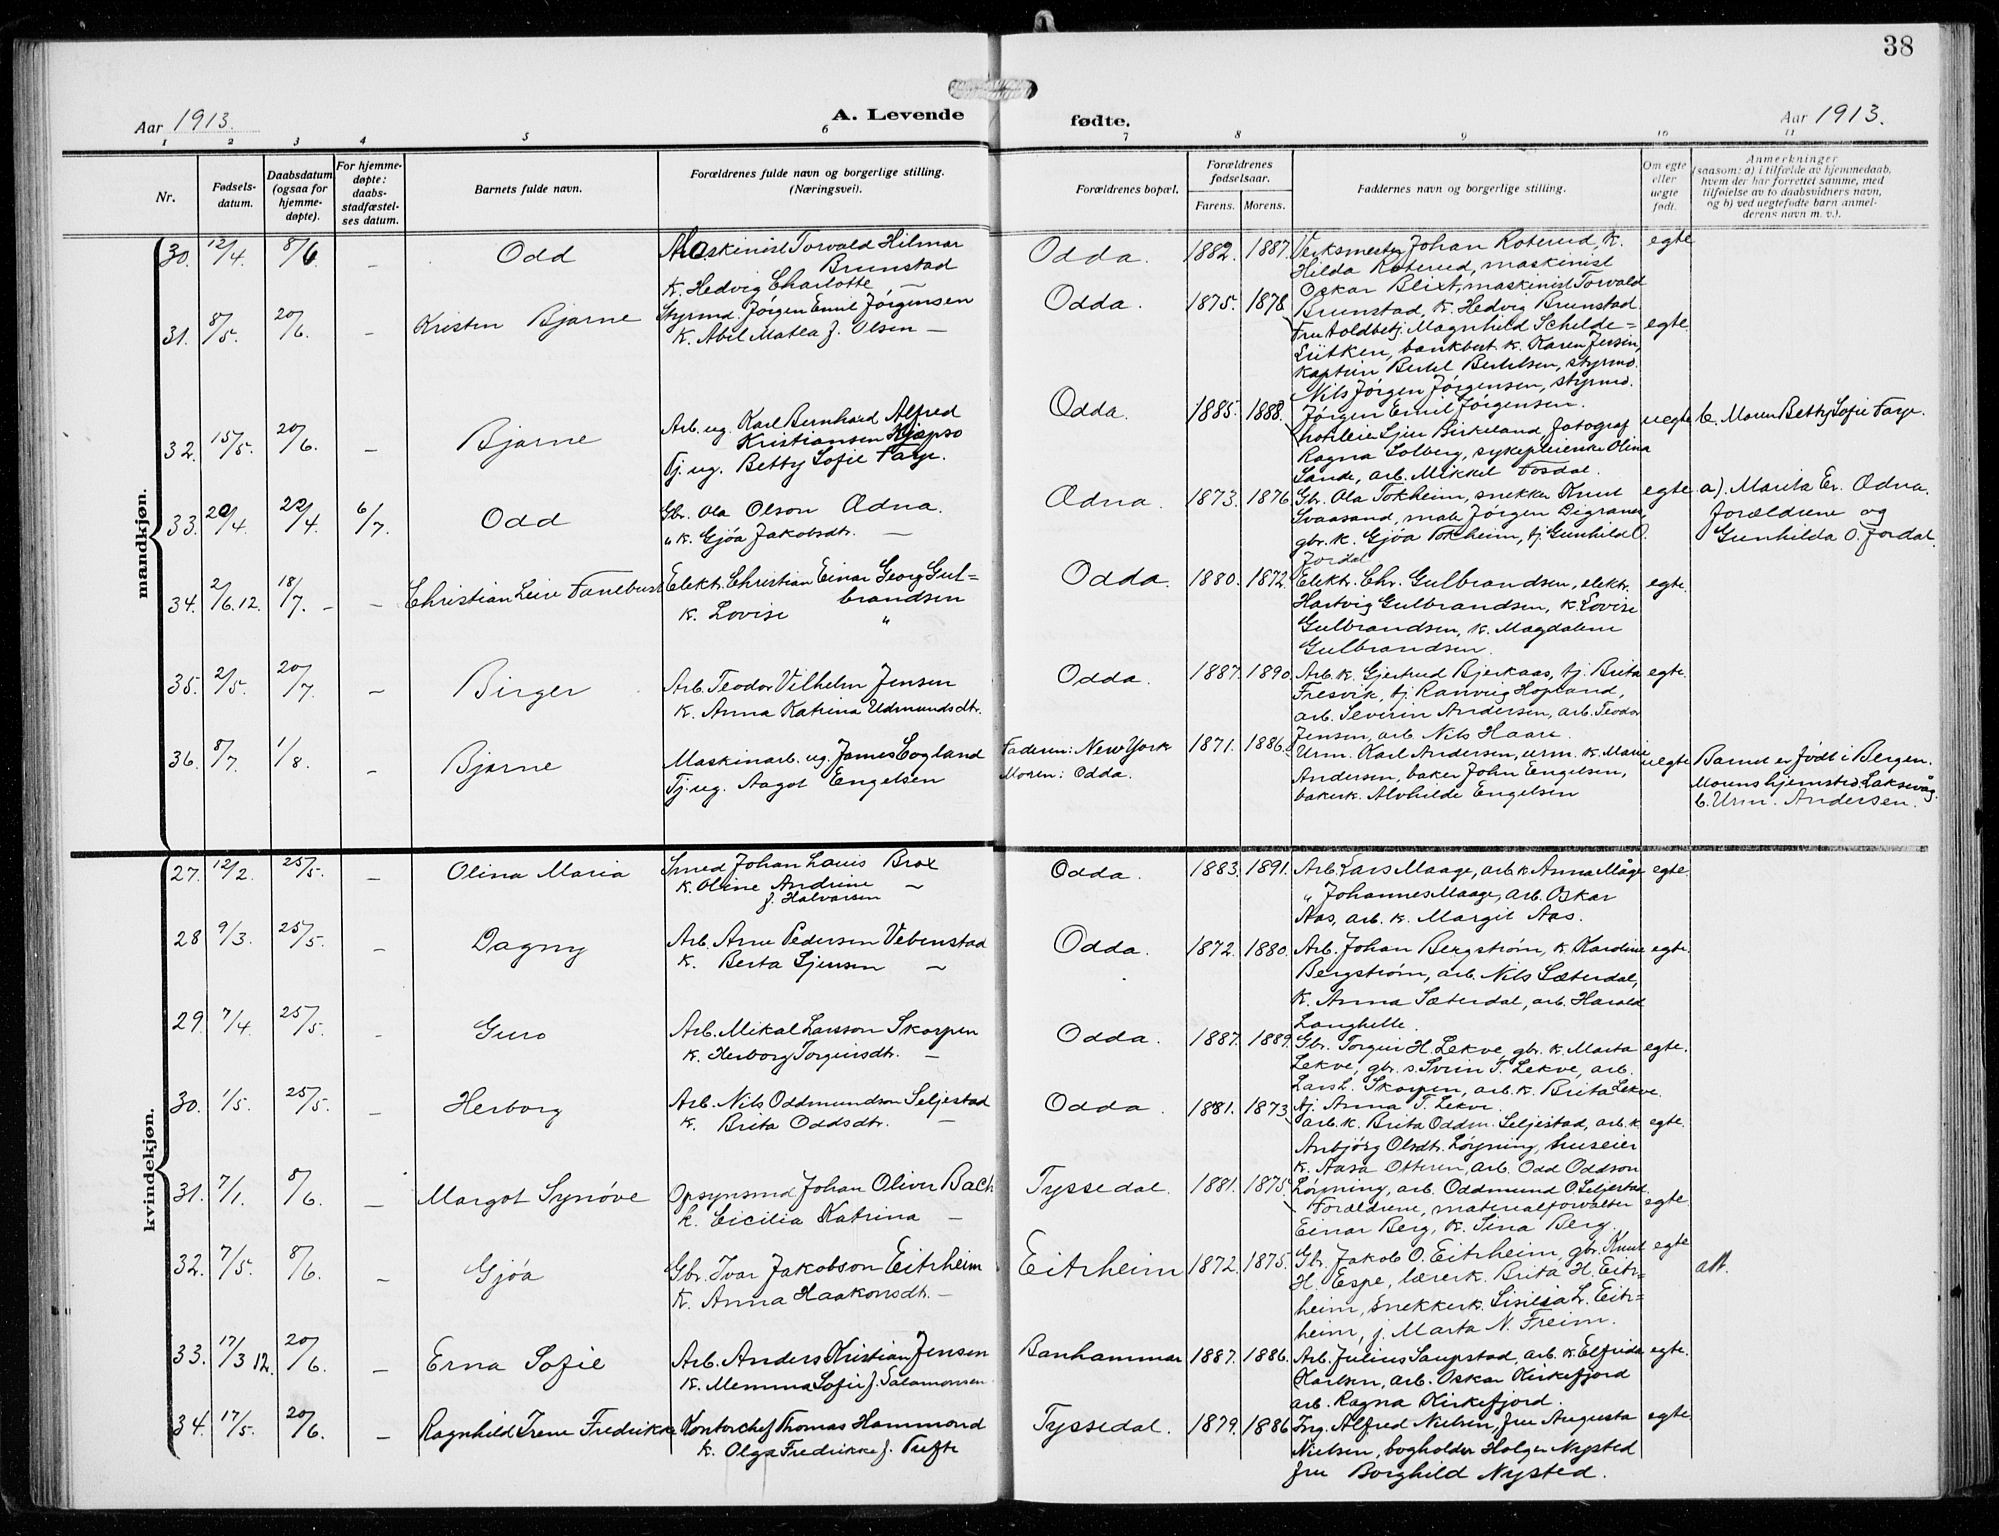 38
Aar 1913.
A. Levende fødte.
Aar 1913.
1 2 3 4 5 6 7 8 9 10 11
Nr.
Fødsels-
datum.
Daabsdatum
(ogsaa for
hjemme-
døpte).
For hjemme-
døpte:
daabs-
stadfæstel-
ses datum.
Barnets fulde navn.
Forældrenes fulde navn og borgerlige stilling.
(Næringsvei).
Forældrenes bopæl.
Forældrenes
fødselsaar.
Farens. Morens.
Faddernes navn og borgerlige stilling.
Om egte
eller
uegte
født.
Anmerkninger
(saasom: a) i tilfælde av hjemmedaab,
hvem der har forrettet samme, med
tilføielse av to daabsvidners navn,
og b) ved uegtefødte barn anmel-
derens navn m. v.).
mandkjøn.
30. 12/4. 8/6. – Odd
Maskinist Torvald Hilmar
Brunstad
k. Hedvig Charlotte –
Odda. 1882. 1887.
Verksmester Johan Roterud, k.
Hilda Roterud, maskinist
Oskar Blixt, maskinist Torvald
Brunstad, k. Hedvig Brunstad
egte
31. 8/5. 20/6. – Kristen Bjarne
Styrmd. Jørgen Emil Jørgensen
k. Abel Matea f. Olsen –
Odda. 1875. 1878
Fru toldbetj. Magnhild Schilde-
Lütken, bankbest. k. Karen Jensen,
kaptein Bertel Bertelsen, styrmd.
Nils Jørgen Jørgensen, styrmd.
Jørgen Emil Jørgensen.
egte.
32. 15/5. 20/6. – Bjarne
Arb. ug. Karl Bernhard Alfred
Kristiansen Kjæpsø
Tj. ug. Betty Sofie Farje.
Odda. 1885. 1888.
Birkeland fotograf
Ragna Solberg, sykepleierske Olina
Sande, arb. Mikkel Fosdal.
uegte b. Moren Betty Sofie Farje.
33. 20/4. 22/4. 6/7. Odd
Gbr. Ola Olson Ædna.
" k. Gjøa Jakobsdt. –
Ædna. 1873. 1876.
Gbr. Ola Tokheim, snekker Knut
Svaasand, maler Jørgen Digranes,
gbr. k. Gjøa Tokheim, tj Gunhild O.
Jordal
egte a). Marita Er. Ædna.
forældrene og
Gunhilda O. Jordal.
34. 2/6.12. 18/7. – – Christian Leire Fanebust
Elektr. Christian Einar Georg Gul=
brandsen
k. Lovise "
Odda. 1880. 1872.
Elektr. Chr. Gulbrandsen, elektr.
Hartvig Gulbrandsen, k. Lovise
Gulbrandsen, k. Magdalene
Gulbrandsen.
egte.
35. 2/5. 20/7. – Birger
Arb. Teodor Vilhelm Jensen
k. Anna Katrina Edmundsdtr.
Odda. 1887. 1890.
Arb. k. Gjertrud Bjerkaas, tj. Brita
Fresvik, tj. Ranveig Hopland,
arb. Severin Andersen, arb. Teodor
Jensen, arb Nils Haare.
egte.
36. 8/7. 1/8. – Bjarne
Maskinarb. ug. James Eogland
Tj. ug. Aagot Engelsen
Faderen: New York
Moren: Odda.
1871. 1886.
Urm. Karl Andersen, urm. k. Marie
Andersen, baker John Engelsen,
bakerk. Alvhilde Engelsen
uegte Barnet er født i Bergen.
Morens hjemsted: Laksevåg.
b. Urm. Andersen.
kvindekjøn.
27. 12/2. 25/5. – Olina Maria
Smed Johan Louis Brox
k. Oline Andrine –
f. Halvarsen
Odda. 1883. 1891.
Arb. Lars Maage, arb. k. Anna Måge
" Johannes Maage, arb. Oskar
Aas, arb. k. Margit Aas.
egte.
28 9/3. 25/5. – Dagny
Arb. Arne Pedersen Vebenstad
k. Berta Sjursen –
Odda. 1872. 1880.
Arb. Johan Bergstrøm, k. Karoline
Bergstrøm, arb. Nils Sæterdal,
k. Anna Sæterdal, arb. Harald
Langhelle.
egte.
29. 7/4. 25/5. – Guro
Arb. Mikal Larsson Skorpen
k. Herborg Torgeirsdt. –
Odda. 1887. 1889.
Gbr. Torgeir H. Lekve, gbr. k. Marta
Lekve, gbr. s. Svein T. Lekve, arb.
Lars L. Skorpen, arb. k. Brita Lekve.
tj. Anna T. Lekve.
egte.
30. 1/5. 25/5. – Herborg
Arb. Nils Oddmundson Seljestad
k. Brita Oddsdt. –
Odda. 1881. 1873
arb. k. Brita Oddm. Seljestad, arb. k.
Anbjørg Olsdt. Løyning, huseier
k. Aasa Otteren, arb. Odd Oddson
Løyning, arb. Oddmund O. Seljestad.
egte.
31. 7/1. 8/6. – Margot Synøve
Opsynsmd Johan Oliver Bach
k. Cicilia Katrina –
Tyssedal. 1881. 1875.
Forældrene, materialforvalter
Einar Berg, k. Sina Berg.
egte.
32. 7/5. 8/6. – Gjøa
Gbr. Ivar Jakobson Eitrheim
k. Anna Haakonsdt. –
Eitrheim 1872. 1875.
Gbr. Jakob O. Eitrheim, gbr. Knut
H. Espe, lærerk. Brita H. Eitr=
heim, snekkerk. Sisilia L. Eitr=
heim, j. Marta N. Freim.
egte att.
33. 17/3 12. 20/6. – Erna Sofie
Arb. Anders Kristian Jensen
k. Memma Sofie f. Salamonsen
Banhammar 1887. 1886.
Arb. Julius Saupstad, arb. k. Elfrida
Karlsen, arb. Oskar Kirkefjord
arb. Ragna Kirkefjord.
egte.
34. 17/5. 20/6. – Ragnhild Irene Fredrikke
Kontorchef Thomas Hammond
k. Olga Fredrikke f. Tufte
Tyssedal. 1879. 1886
Ing. Alfred Nielsen, fru Augusta
Nielsen, bogholder Holger Nysted
fru Borghild Nysted.
egte